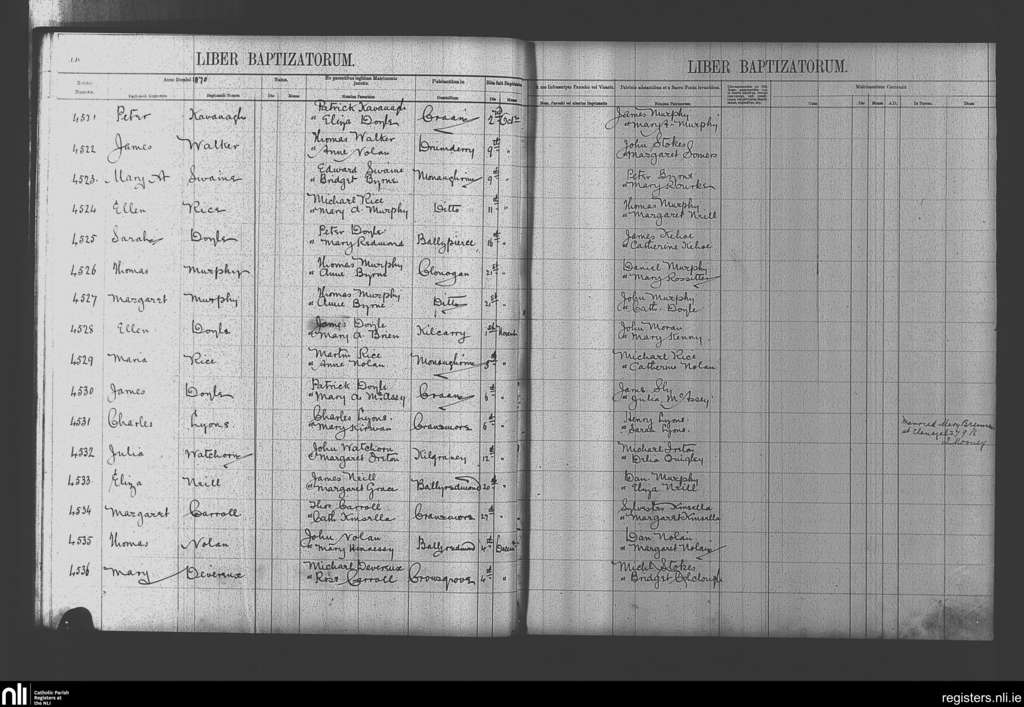 LIBER BAPTIZATORUM.
LIBER BAPTIZATORUM.
Anno Domini 1870
Natus.
Ex parentibus legitimo Matrimonio junctis
Habitantibus in
Rite fuit Baptizatus
Die Mense
Die Mense
Matrimonium Contraxit
Die Mense A.D.
4521 Peter Kavanagh Patrick Kavanagh Craan 2nd Octr James Murphy
" Eliza Doyle " Mary A. Murphy
4522 James Walker Thomas Walker Drumderry 9th " John Stokes
" Anne Nolan " Margaret Somers
4523. Mary A Swaine Edward Swaine Monaughrim 9th " Peter Byrne
" Bridget Byrne " Mary Rourke
4524 Ellen Rice Michael Rice Ditto 11th " Thomas Murphy
" Mary A Murphy " Margaret Neill
4525 Sarah Doyle Peter Doyle Ballypierce 16th " James Kehoe
" Mary Redmond " Catherine Kehoe
4526 Thomas Murphy Thomas Murphy Clonogan 21st " Daniel Murphy
" Anne Byrne " Mary Rossitter
4527 Margaret Murphy Thomas Murphy Ditto 21st " John Murphy
" Anne Byrne " Cath. Doyle
4528 Ellen Doyle James Doyle Kilcarry 1st John Moran
" Mary A Brien " Mary Kenny
4529 Maria Rice Martin Rice Monaughrim 5th " Michael Rice
" Anne Nolan " Catherine Nolan
4530 James Doyle Patrick Doyle Craan 6th " James Sly
" Mary A McAssey " Julia McAssey
4531 Charles Lyons Charles Lyons. Cranemore 6th " Henry Lyons
" Mary Kirwan " Sarah Lyons.
4532 Julia Watchorn John Watchorn Kilgraney 12th " Michael Irton
" Margaret " Delia Quigley
4533 Eliza Neill James Neill Ballyredmond 20th " Dan Murphy
" Margaret Grace " Eliza Neill
4534 Margaret Carroll Thos Carroll Cranemore 27th " Sylvester Kinsella
" Cath Kinsella " Margaret Kinsella
4535 Thomas Nolan John Nolan Ballyredmond 4th Decem Dan Nolan
" Mary Hennessy " Margaret Nolan
4536 Mary Devereux Michael Devereux Crowsgrove 4th " Michl Stokes
" Rose Carroll " Bridget Colclough
Married Mary
at
nli
Catholic Parish
Registers at
the NLI
registers.nli.ie